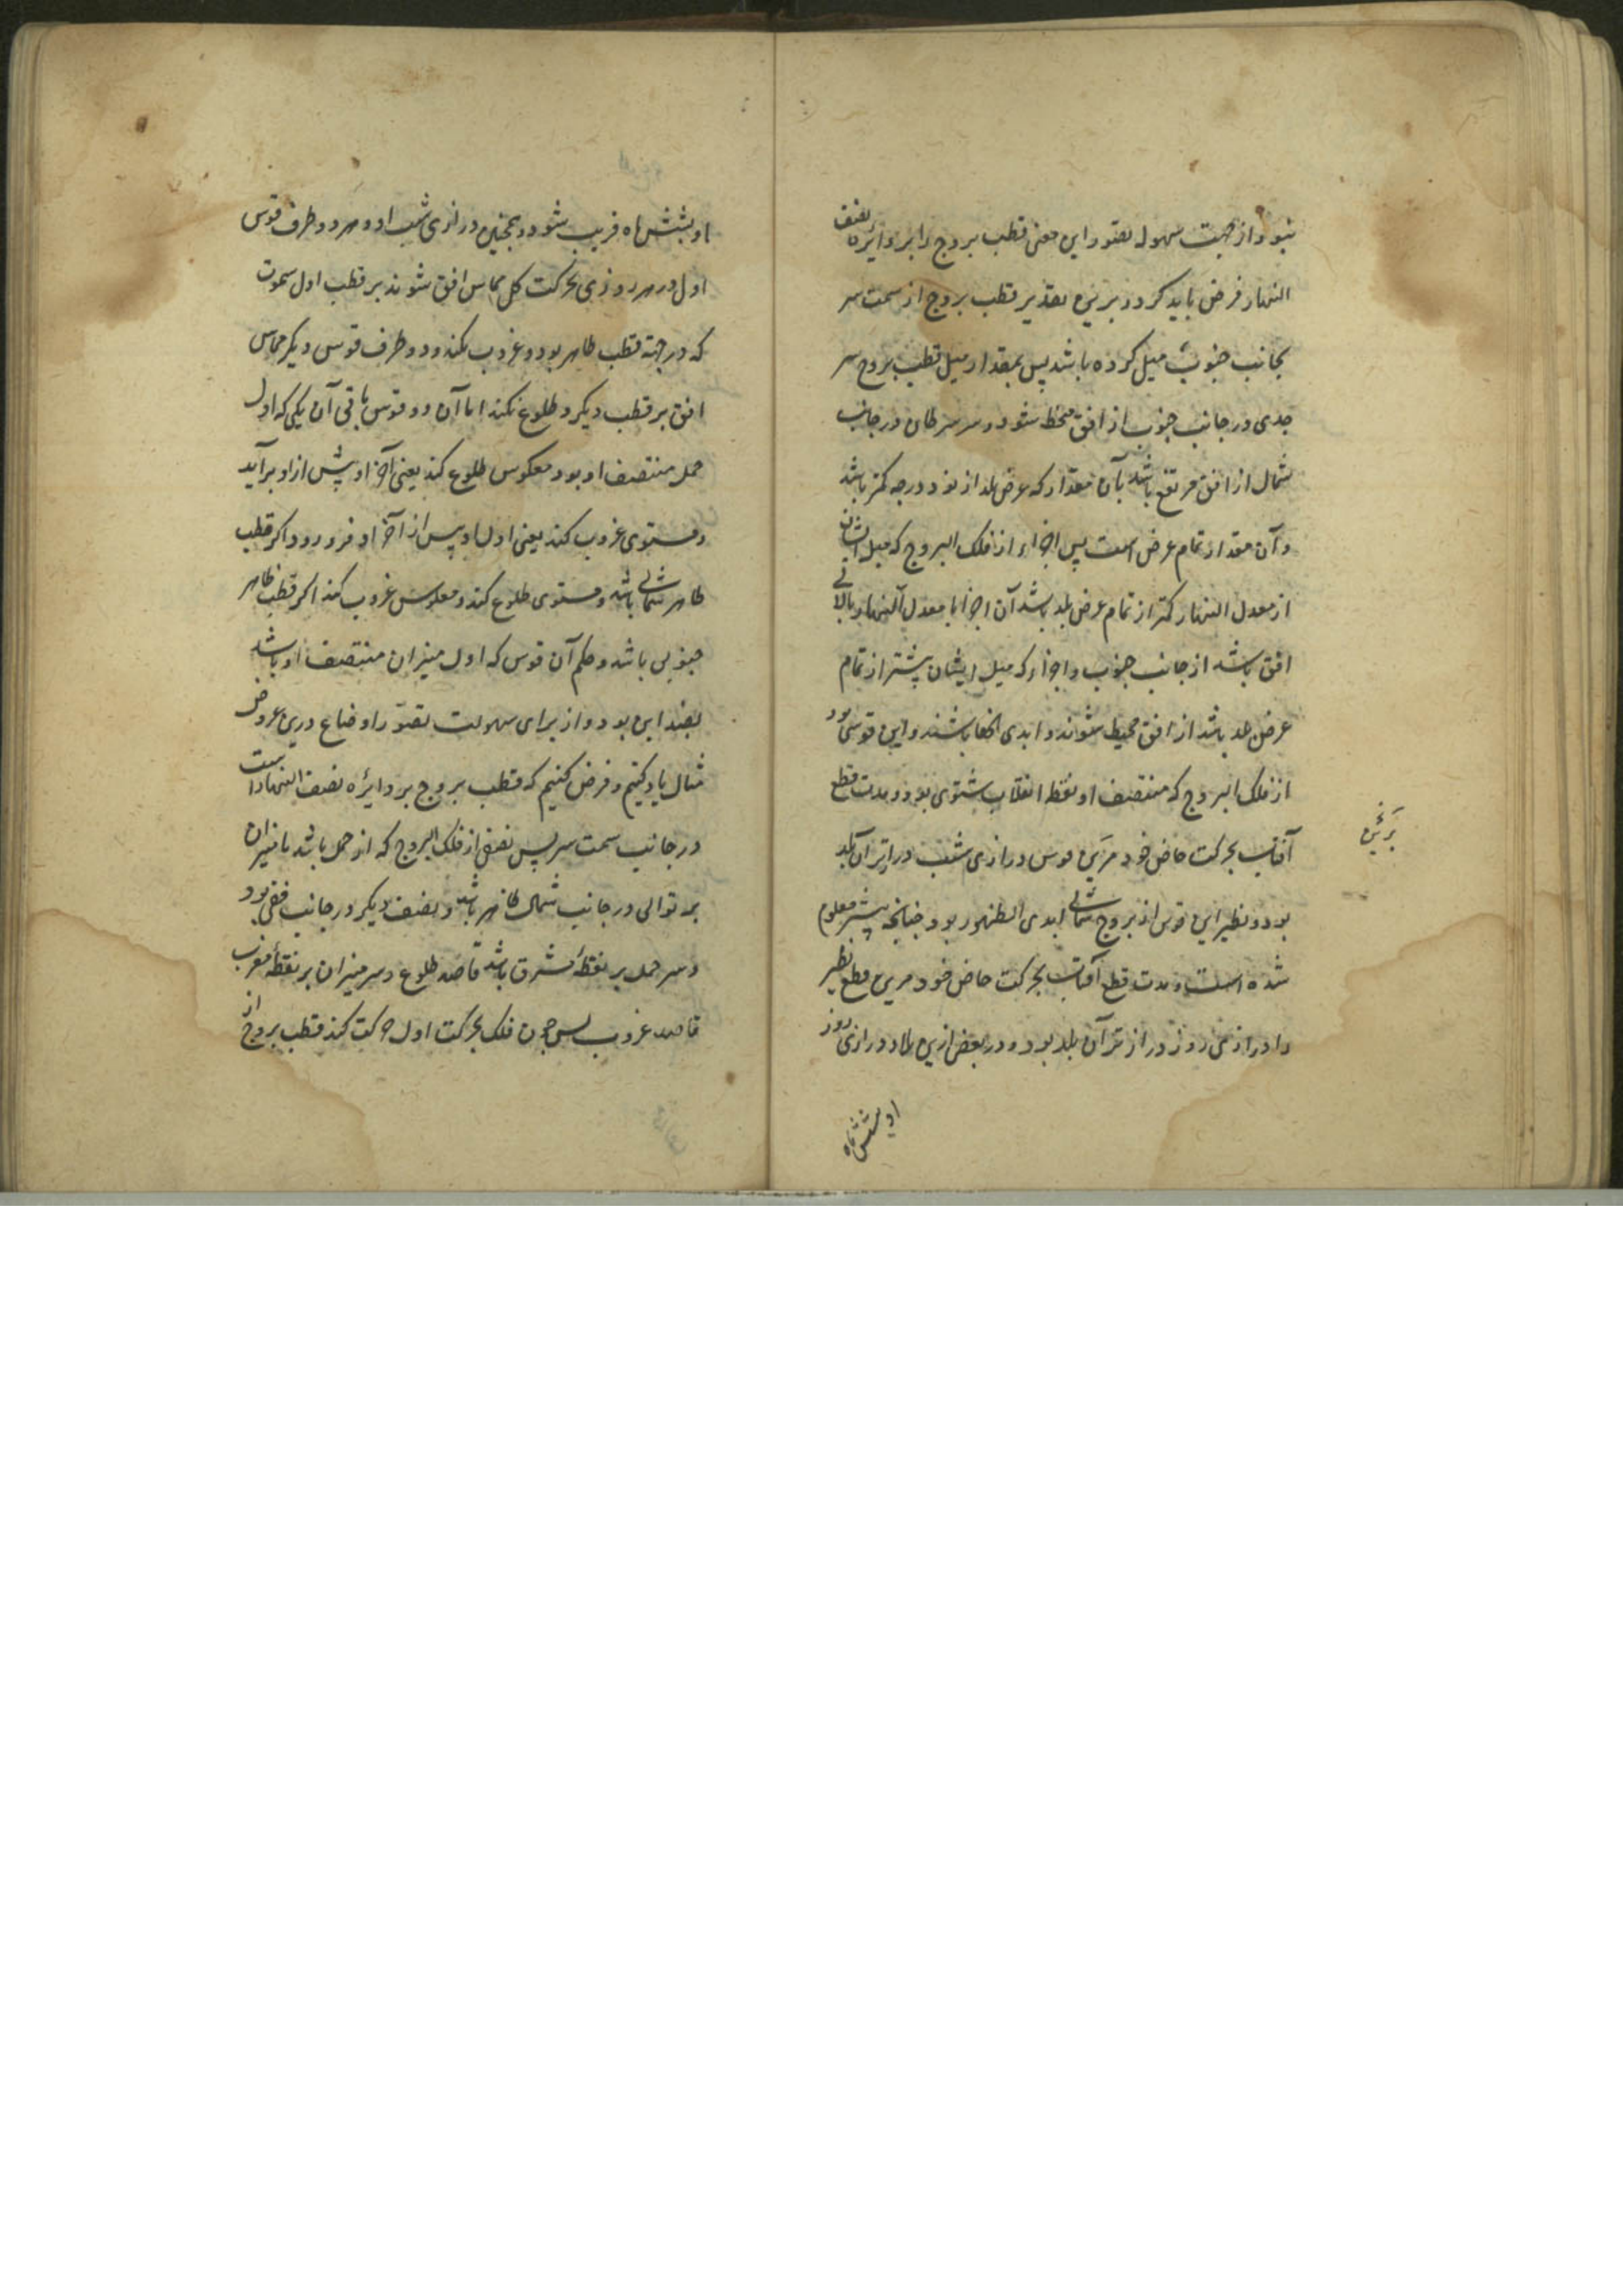 نبود و از جهت سهوله تصور این معنی قطب بروج را بر دایرهٔ نصف
النهار فرض باید کرد و برین تقدیر قطب بروج از سمت سر
بجانب جنوب میل کرده باشد پس بمقدار میل قطب بروج سر
جدی در جانب جنوب از افق منحط شود و سر سرطان در جانب
شمال از افق مرتفع باشد بآن مقدار که عرض بلد از نود درجه کمتر باشد
و آن مقدار تمام عرض است پس اجزاء از فلک البروج که میل ایشان
از معدل النهار کمتر از تمام عرض بلد باشد آن اجزا با معدل النهار بالای
افق باشد از جانب جنوب و اجزاء که میل ایشان بیشتر از تمام
عرض بلد باشد از افق منحط شوند و ابدی الخفا باشند و این قوسی بود
از فلک البروج که منتصف او نقطه انقلاب شتوی بود و مدت قطع
آفتاب بحرکت خاص خود مرین قوس درازی شب درازتر آن بلد
بود و نظیر این قوس از بروج شمالی ابدی الظهور بود چنانچه پیشتر معلوم
شده است و مدت قطع آفتاب بحرکت خاص خود مرین قطع نظیر
را درازی روز درازتر آن بلد بود و در بعض ازین بلاد درازی روز
او بشش ماه
او بشش ماه قریب شود و همچنین درازی شب او و هر دو طرف قوس
اول در هر روزی بحرکت کل مماس افق شوند بر قطب اول سموت
که در جهة قطب ظاهر بود و غروب نکند و دو طرف قوس دیگر مماس
افق بر قطب دیگر و طلوع نکند اما آن دو قوس باقی آن یکی که اول
حمل منتصف او بود معکوس طلوع کند یعنی آخر او پیش از او برآید
و مستوی غروب کند یعنی اول او پس از آخر او فرو رود اکر قطب
ظاهر شمالی باشد و مستوی طلوع کند و معکوس غروب کند اکر قطب ظاهر
جنوبی باشد و حکم آن قوس که اول میزان منتصف او باشد
بضد این بود و از برای سهولت تصور اوضاع درین عروض
مثال یاد کنیم و فرض کنیم که قطب بروج بر دایره نصف النهار است
در جانب سمت سر پس نصفی از فلک البروج که از حمل باشد تا میزان
بر توالی در جانب شمال ظاهر باشد و نصف دیکر در جانب خفی بود
و سر حمل بر نقطهٔ مشرق باشد قاصد طلوع و سر میزان بر نقطهٔ مغرب
قاصد غروب پس چون فلک بحرکت اول حرکت کند قطب بروج از